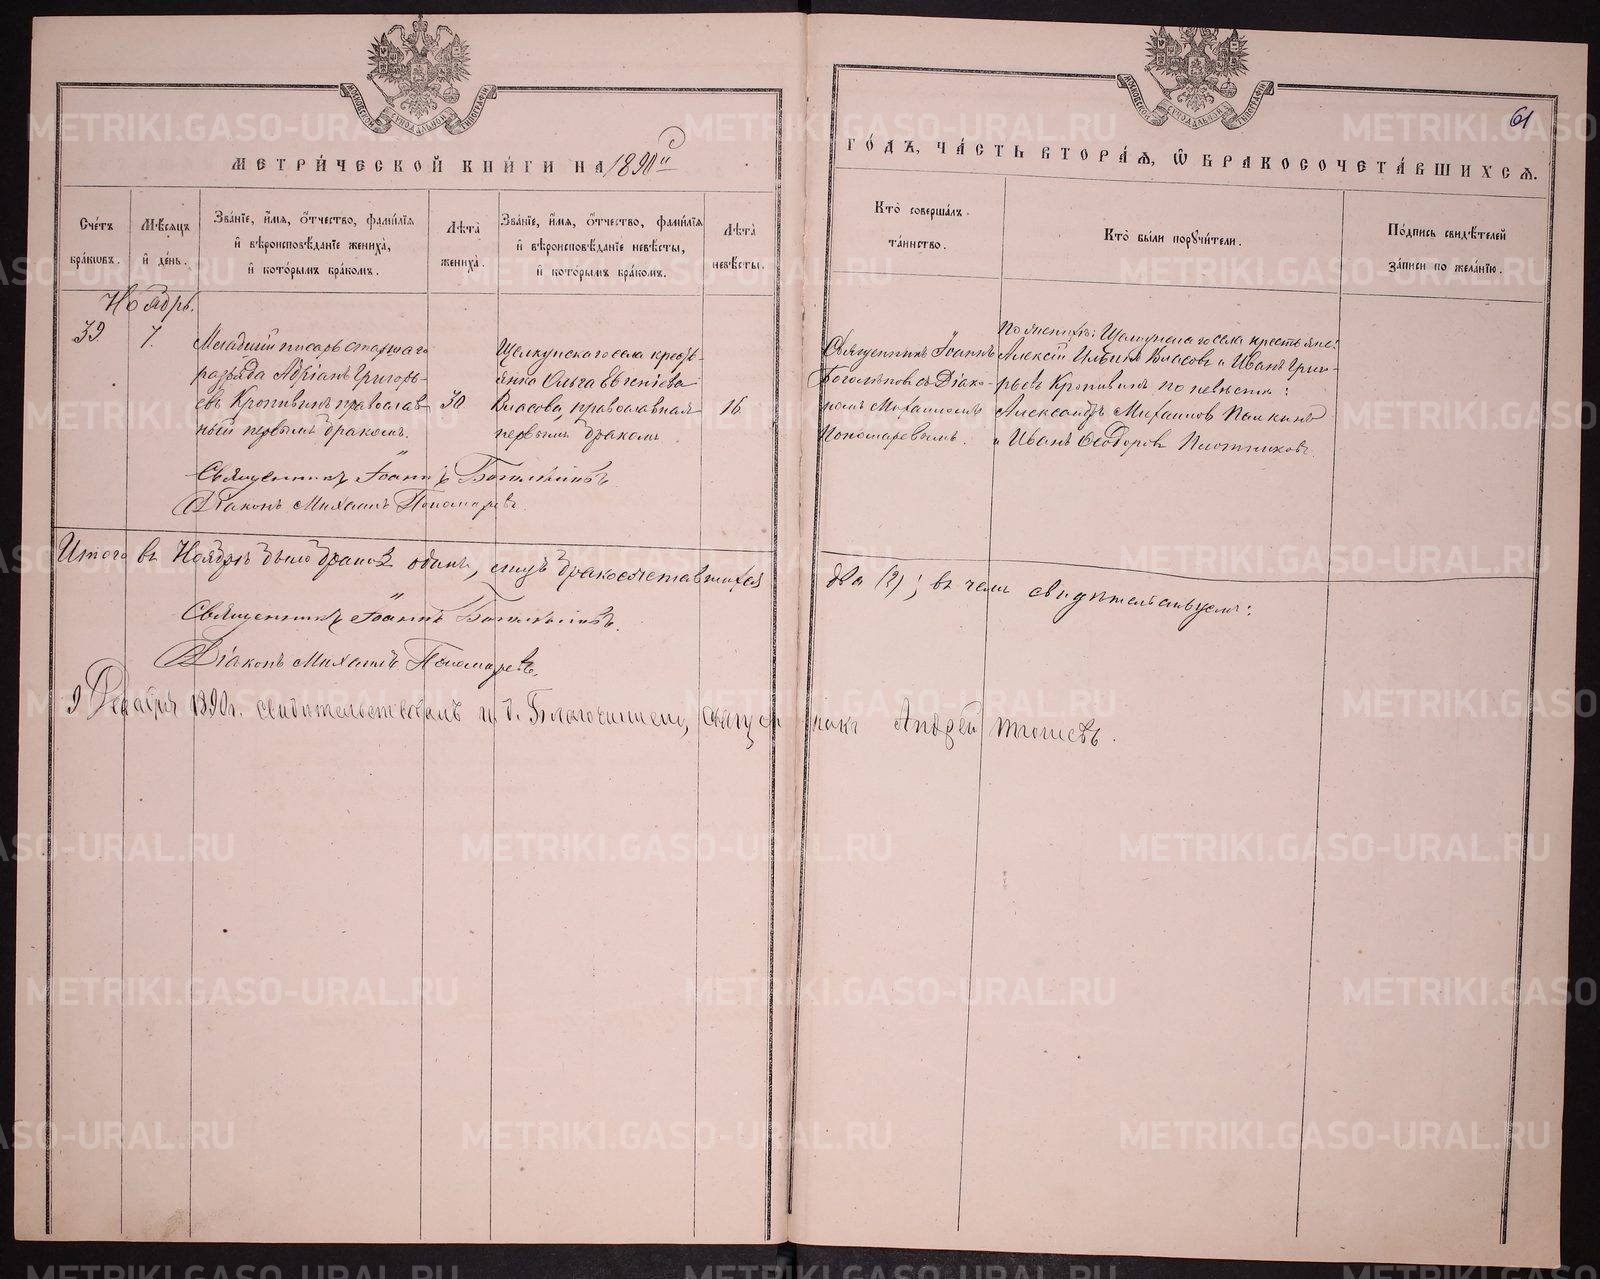 МОСКОВСКОЙ СѴНОДАЛЬНОЙ ТИПОГРАФІИ
МОСКОВСКОЙ СѴНОДАЛЬНОЙ ТИПОГРАФІИ
61
МЕТРИ́ЧЕСКОЙ КНИ́ГИ НА 1890й
ГО́ДЪ, ЧА́СТЬ ВТОРА́Ѧ, Ѽ БРАКОСОЧЕТА́ВШИХСѦ.
Сче́тъ бра́кѡвъ.
Мѣ́сяцъ и҆ де́нь.
Зва́нїе, и҆́мѧ, ѻ҆́тчество, фами́лїѧ и҆ вѣроисповѣ́данїе жениха̀, и҆ кото́рымъ бра́комъ.
Лѣ́та̀ жениха̀.
Зва́нїе, и҆́мѧ, ѻ҆́тчество, фами́лїѧ и҆ вѣроисповѣ́данїе невѣ́сты, и҆ кото́рымъ бра́комъ.
Лѣ́та̀ невѣ́сты.
Кто̀ соверша́лъ та́инство.
Кто̀ бы́ли порꙋчи́тели.
По́дпись свидѣ́телей за́писи по жела́нїю.
Ноябрь.
39.
7.
Младшій писарь старшаго
разряда Адріанъ Григорь-
евъ Кропивинъ православ-
ный первымъ бракомъ.
30.
Щелкунскаго села кресть-
янка Ольга Евгеніева
Власова, православная
первымъ бракомъ
16.
Священникъ Іоаннъ
Боголѣповъ съ Діако-
номъ Михаиломъ
Пономаревымъ.
По женихѣ: Щелкунскаго села крестьяне:
Алексій Ильинъ Власовъ и Иванъ Григо-
рьевъ Кропивинъ по невѣстѣ:
Александръ Михаиловъ Палкинъ
и Иванъ Ѳеодоровъ Плотниковъ.
Священникъ Іоаннъ Боголѣповъ
Діаконъ Михаилъ Пономаревъ.
Итого въ Ноябрѣ было браковъ одинъ, лицъ бракосочетавшихся два (2); въ чемъ свидѣтельствуемъ:
Священникъ Іоаннъ Боголѣповъ.
Діаконъ Михаилъ Пономаревъ.
9 Декабря 1890г. свидѣтельствовалъ и. д. Благочиннаго, священникъ Андрей
METRIKI.GASO-URAL.RU